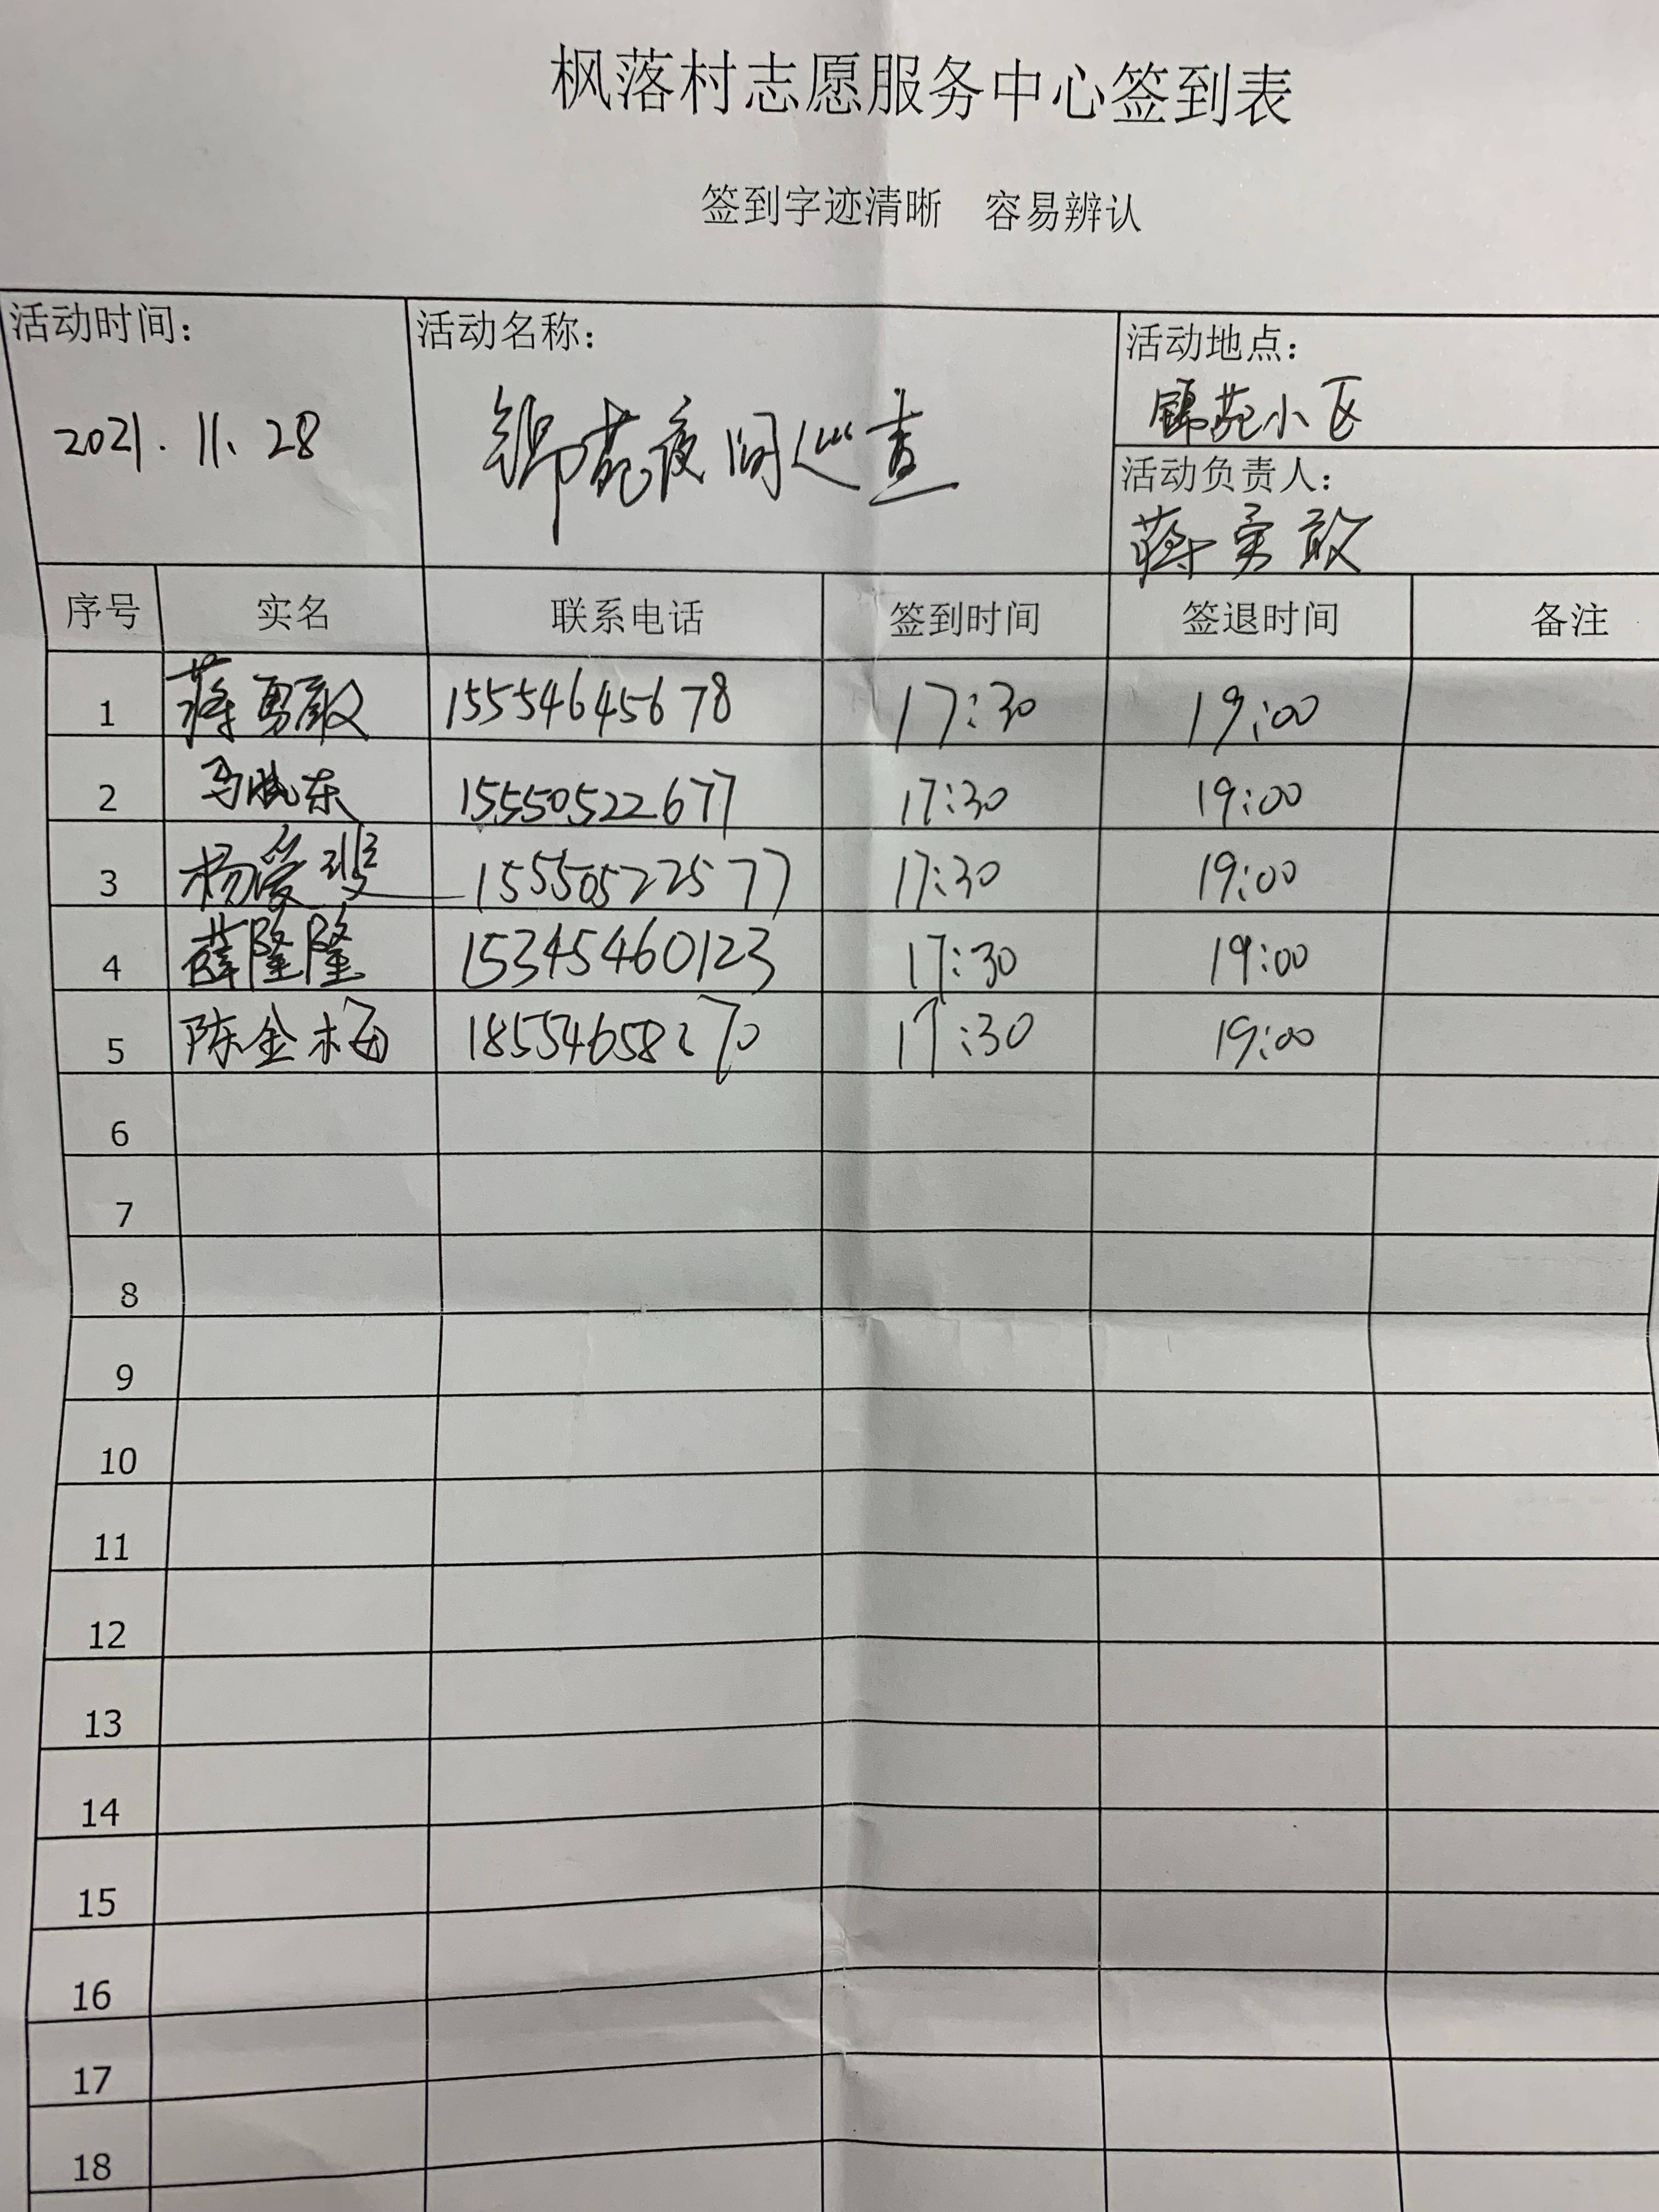 枫落村志愿服务中心签到表
签到字迹清晰 容易辨认
活动时间： 活动名称： 活动地点：
2021.11.28 锦苑夜间巡查 锦苑小区
活动负责人：
蒋勇敢
序号 实名 联系电话 签到时间 签退时间 备注
1 蒋勇敢 15554645678 17:30 19:00
2 马晓东 15550522677 17:30 19:00
3 杨爱斐 15550522577 17:30 19:00
4 薛隆隆 15345460123 17:30 19:00
5 陈金梅 18554658270 17:30 19:00
6
7
8
9
10
11
12
13
14
15
16
17
18